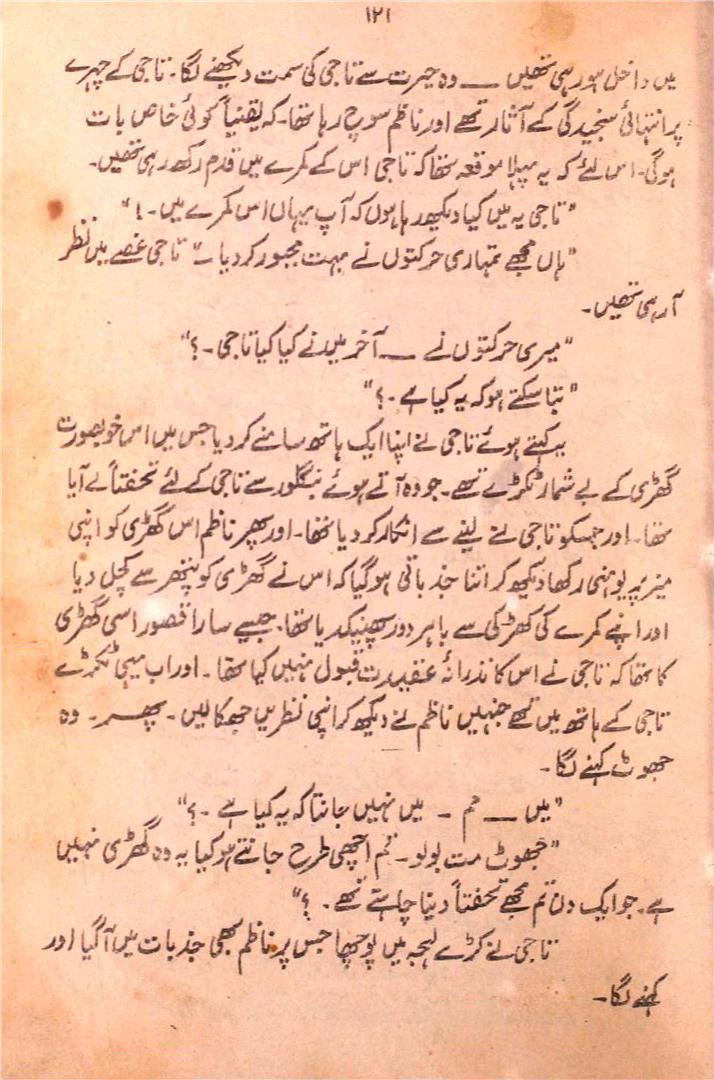 ۱۲۱
میں داخل ہو رہی تھیں ــــ وہ حیرت سے تاجی کی سمت دیکھنے لگا۔ تاجی کے چہرے
پر انتہائی سنجیدگی کے آثار تھے اور ناظم سوچ رہا تھا۔ کہ یقیناً کوئی خاص بات
ہوگی۔ اس لئے کہ یہ پہلا موقعہ تھا کہ تاجی اس کے کمرے میں قدم رکھ رہی تھیں۔
"تاجی یہ میں کیا دیکھ رہا ہوں کہ آپ یہاں اس کمرے میں۔!"
"ہاں مجھے تمہاری حرکتوں نے بہت مجبور کر دیا ـ" تاجی غصے میں نظر
آ رہی تھیں۔
"میری حرکتوں نے ــــ آخر میں نے کیا کیا تاجی۔؟"
"بتا سکتے ہو کہ یہ کیا ہے۔؟"
یہ کہتے ہوئے تاجی نے اپنا ایک ہاتھ سامنے کر دیا جس میں اس خوبصورت
گھڑی کے بے شمار ٹکڑے تھے۔ جو وہ آتے ہوئے بنگلور سے تاجی کے لئے تحفتاً لے آیا
تھا۔ اور جسکو تاجی نے لینے سے انکار کر دیا تھا۔ اور پھر ناظم اس گھڑی کو اپنی
میز پر یونہی رکھا دیکھ کر اتنا جذباتی ہو گیا کہ اس نے گھڑی کو پتھر سے کچل دیا
اور اپنے کمرے کی کھڑکی سے باہر دور پھینک دیا تھا۔ جیسے سارا قصور اسی گھڑی
کا تھا کہ تاجی نے اس کا نذرانۂ عقیدت قبول نہیں کیا تھا۔ اور اب یہی ٹکڑے
تاجی کے ہاتھ میں تھے جنہیں ناظم نے دیکھ کر اپنی نظریں جھکا لیں۔ پھر۔ وہ
جھوٹ کہنے لگا۔
"میں ــــ تم ـ میں نہیں جانتا کہ یہ کیا ہے۔؟"
"جھوٹ مت بولو۔ تم اچھی طرح جانتے ہو کیا یہ وہ گھڑی نہیں
ہے۔ جو ایک دن تم مجھے تحفتاً دینا چاہتے تھے۔؟"
تاجی نے کڑے لہجہ میں پوچھا جس پر ناظم بھی جذبات میں آ گیا اور
کہنے لگا۔